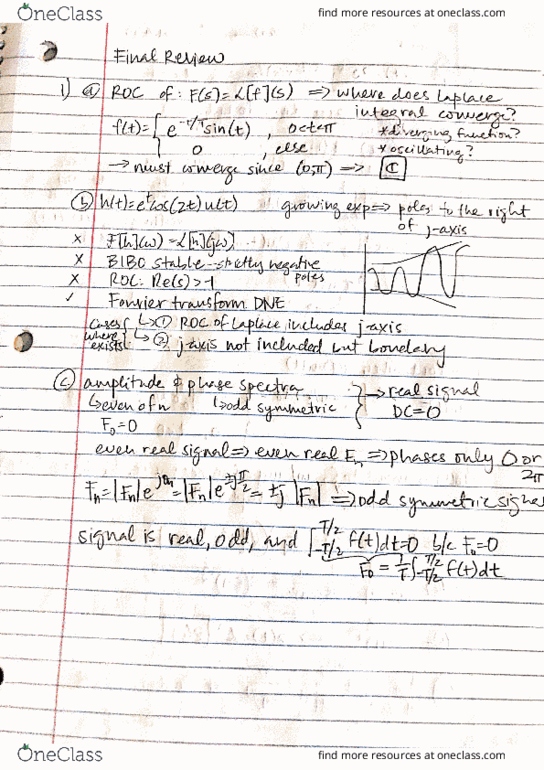 OneClass
find more resources at oneclass.com
Final Review
1) a) ROC of: F(s) = L[f](s) => where does Laplace
integral converge?
f(t) = { e^-t/T sin(t) , 0<t<π *diverging function?
0 , else *oscillating?
→ must converge since (0,π) => ℂ
b) h(t) = e^t cos(2t) u(t) growing exp => poles to the right
of j-axis
x F[h](ω) = L[h](jω)
x BIBO stable - strictly negative
poles
x ROC: Re(s) > -1
✓ Fourier transform DNE
cases where exists { ↳ ① ROC of Laplace includes j-axis
↳ ② j-axis not included but boundary
c) amplitude & phase spectra } → real signal
↳ even of n ↳ odd symmetric DC=0
F₀=0
even real signal => even real Fn => phases only 0 or
2π
Fn = |Fn| e^jθn = |Fn| e^±jπ/2 = ±j |Fn| => odd symmetric signal
signal is real, odd, and ∫_-T/2^T/2 f(t)dt=0 b/c F₀=0
F₀ = 1/T ∫_-T/2^T/2 f(t)dt
OneClass
find more resources at oneclass.com